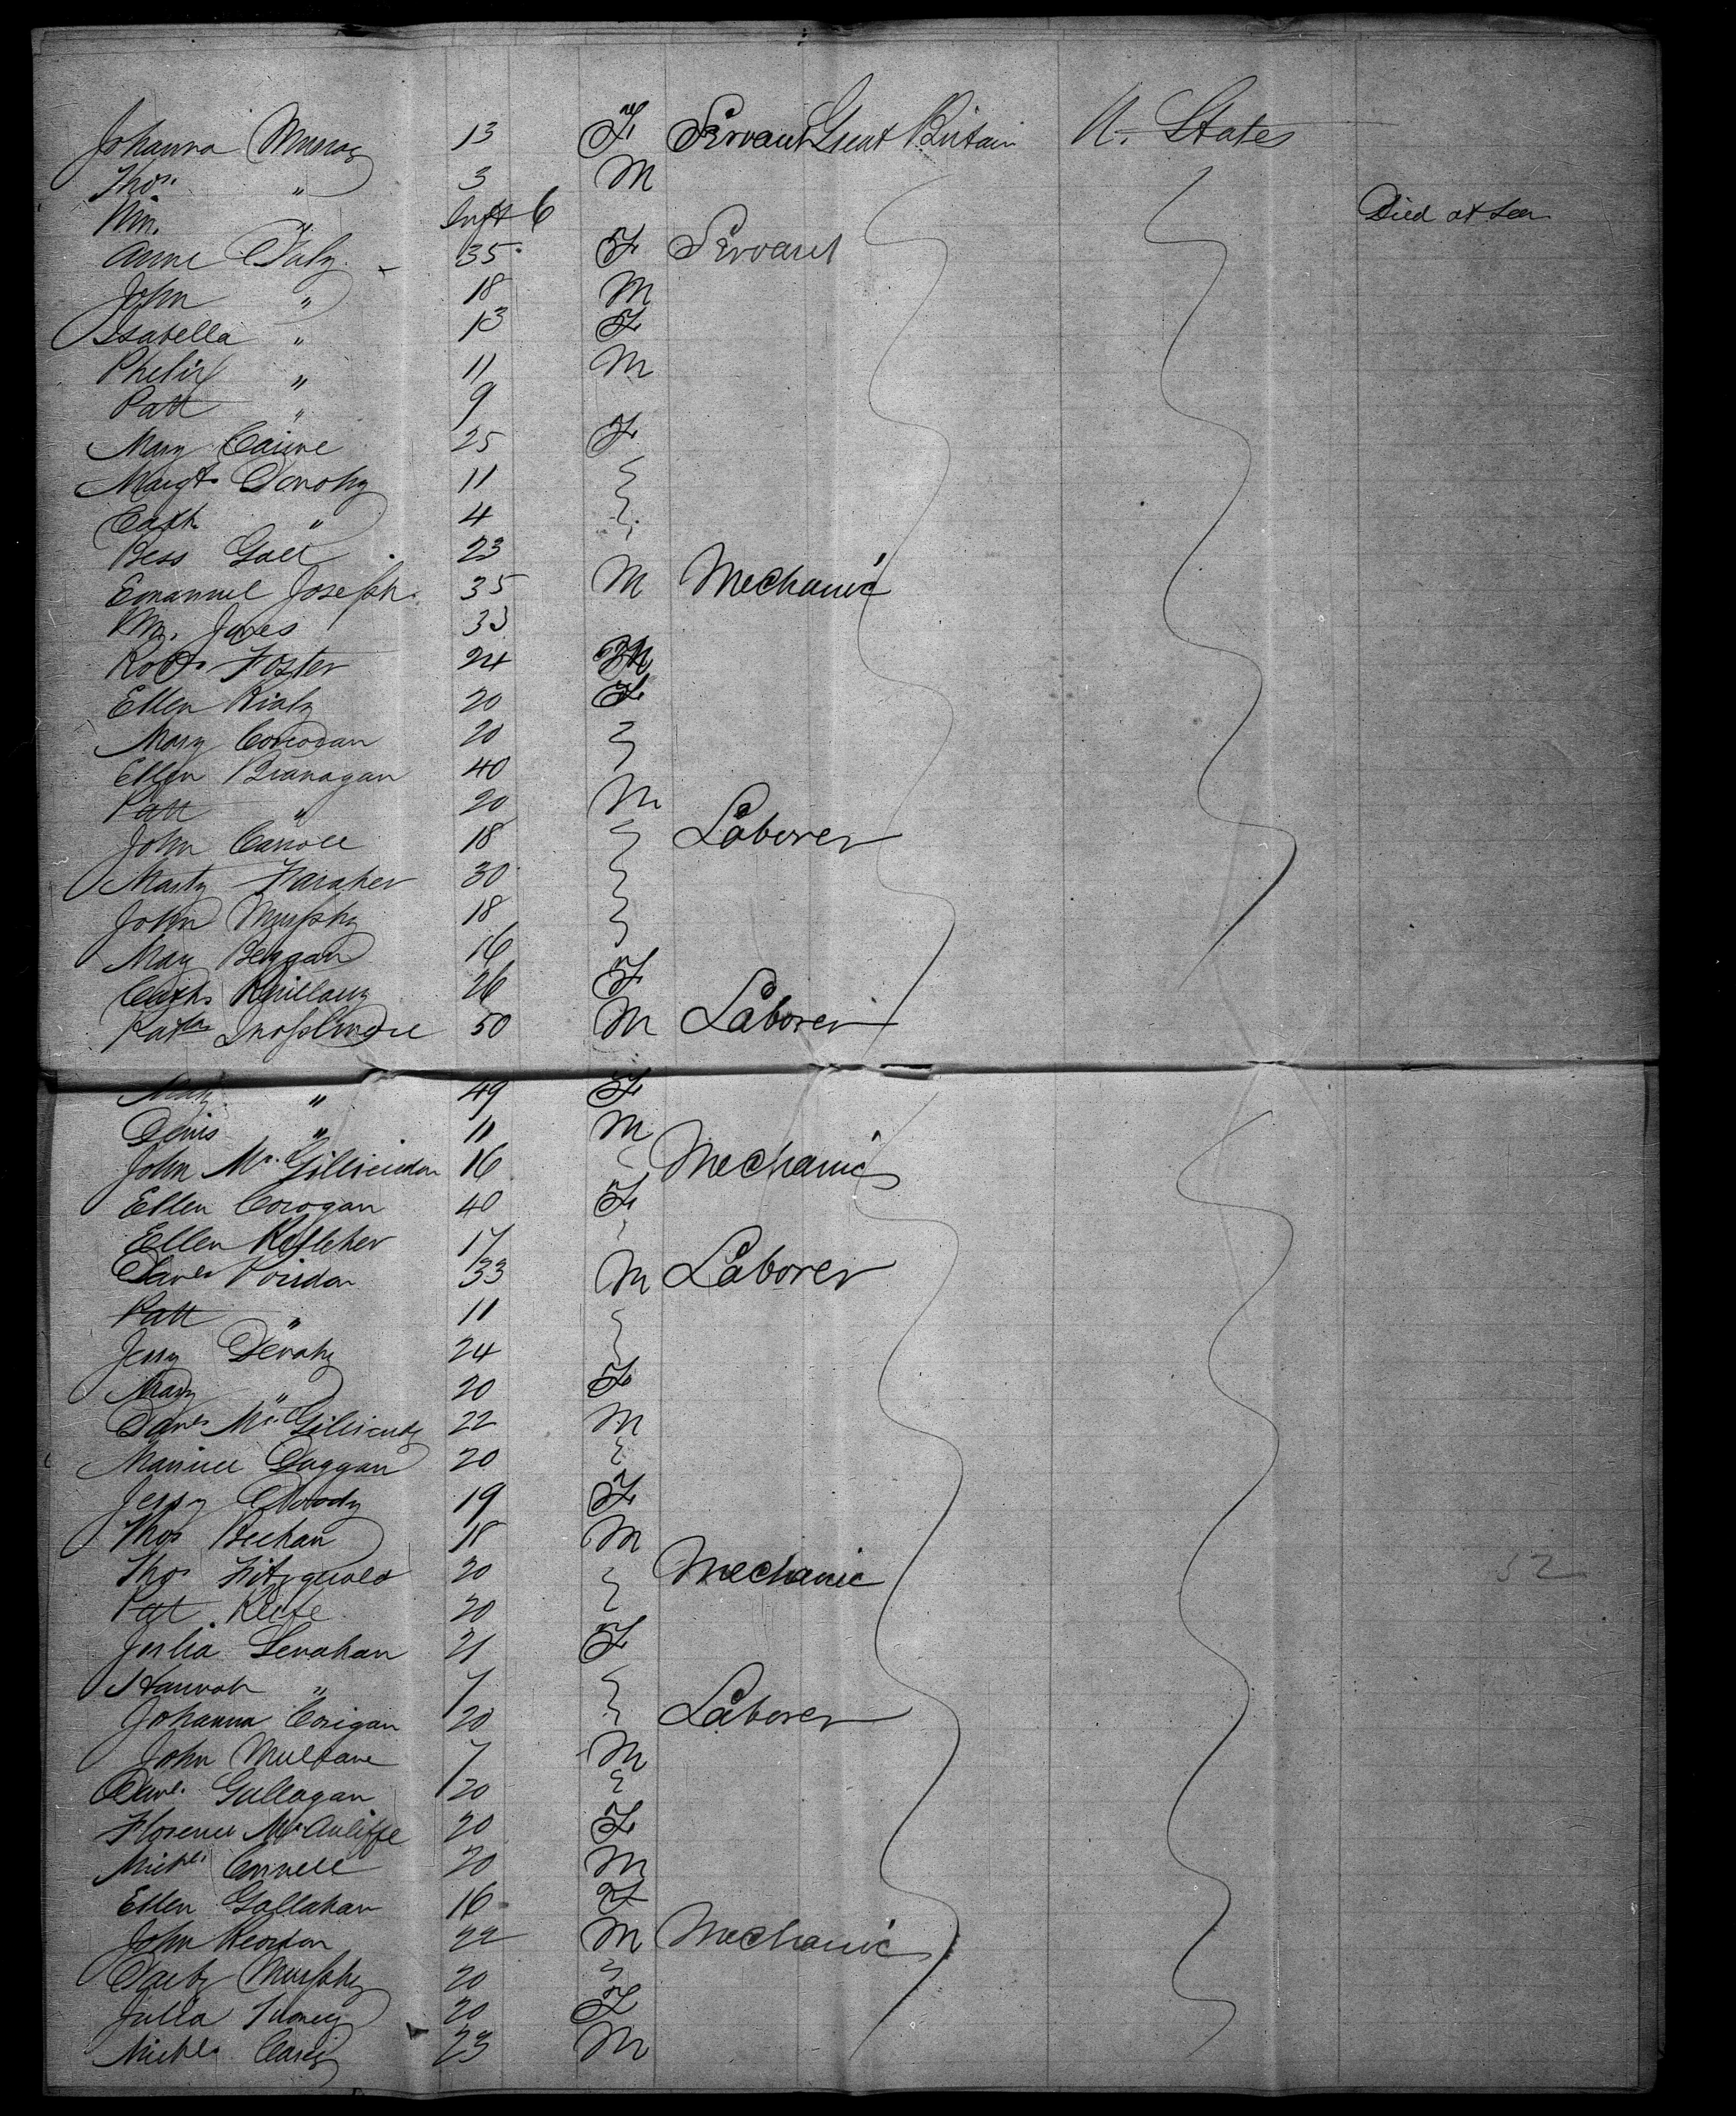 Johanna Murray 13 F Servant Great Britain U. States
Thos. " 3 M
Wm. " Inft 6 Died at Sea
Anne Daly 35 F Servant
John " 18 M
Isabella " 13 F
Phelix " 11 M
Patt " 9
Mary Caine 25 F
Margt. Donohy 11
Cath. " 4
Bess Gall 23
Emanuel Joseph 35 M Mechanic
Wm. Jones 33
Robt. Foster 24 M
Ellen Rialy 20 F
Mary Corcoran 20
Ellen Branagan 40
Patt " 20 M
John Carroll 18 Laborer
Marty Faraher 30
John Murphy 18
May Beggan 16
Cath. 26 F
50 M Laborer
49 F
Denis " 11 M
John Mc. 16 Mechanic
Ellen Corogan 40 F
Ellen Kelleher 17
Danl. 33 M Laborer
Patt " 11
Jerry Denahy 24
Mary " 20 F
Danl. Mc. 22 M
Maurice Duggan 20
Jerry 19 F
Thos Beehan 18 M
Thos Fitzgerald 20 Mechanic
Pat Keefe 20
Julia Lenahan 21 F
Hannah " 7
Johanna Corigan 20 Laborer
John Mullane 7 M
Danl. Gullagan 20
Florence McAuliffe 20 F
Michl. Connell 20 M
Ellen Gallahan 16 F
John Reordon 22 M Mechanic
Darby Murphy 20
Julia 20 F
Michl. Carey 23 M
52